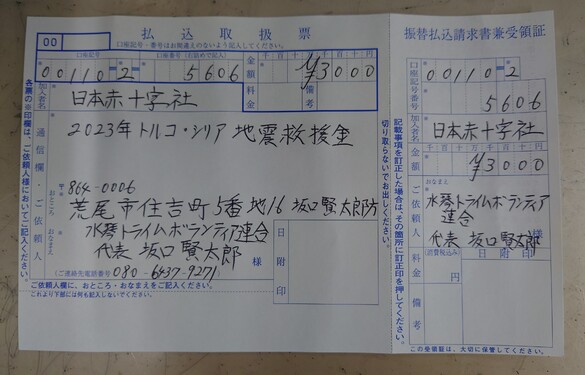 払込取扱票
00
口座記号・番号はお間違えのないよう記入してください。
口座記号 口座番号(右詰めで記入)
00110-2- 5606
金額 千百十万千百十円
¥3000
加入者名 日本赤十字社
料金 備考
通信欄・ご依頼人
2023年トルコ・シリア 地震救援金
おところ 〒 864-0006
荒尾市住吉町5番地16 坂口賢太郎方
おなまえ 水琴トライムボランティア連合
代表 坂口賢太郎 様
(ご連絡先電話番号 080-6437-9271
日附印
ご依頼人欄に、おところ・おなまえをご記入ください。
これより下部には何も記入しないでください。
各票の※印欄は、ご依頼人様においてご記入ください。
切り取らないでお出しください。
記載事項を訂正した場合は、その箇所に訂正印を押してください。
振替払込請求書兼受領証
口座記号番号 00110-2
5606
加入者名 日本赤十字社
金額 千百十万千百十円
¥3000
ご依頼人 おなまえ
水琴トライムボランティア
連合
代表 坂口賢太郎 様
料金 (消費税込み) 円
日附印
備考
この受領証は、大切に保管してください。